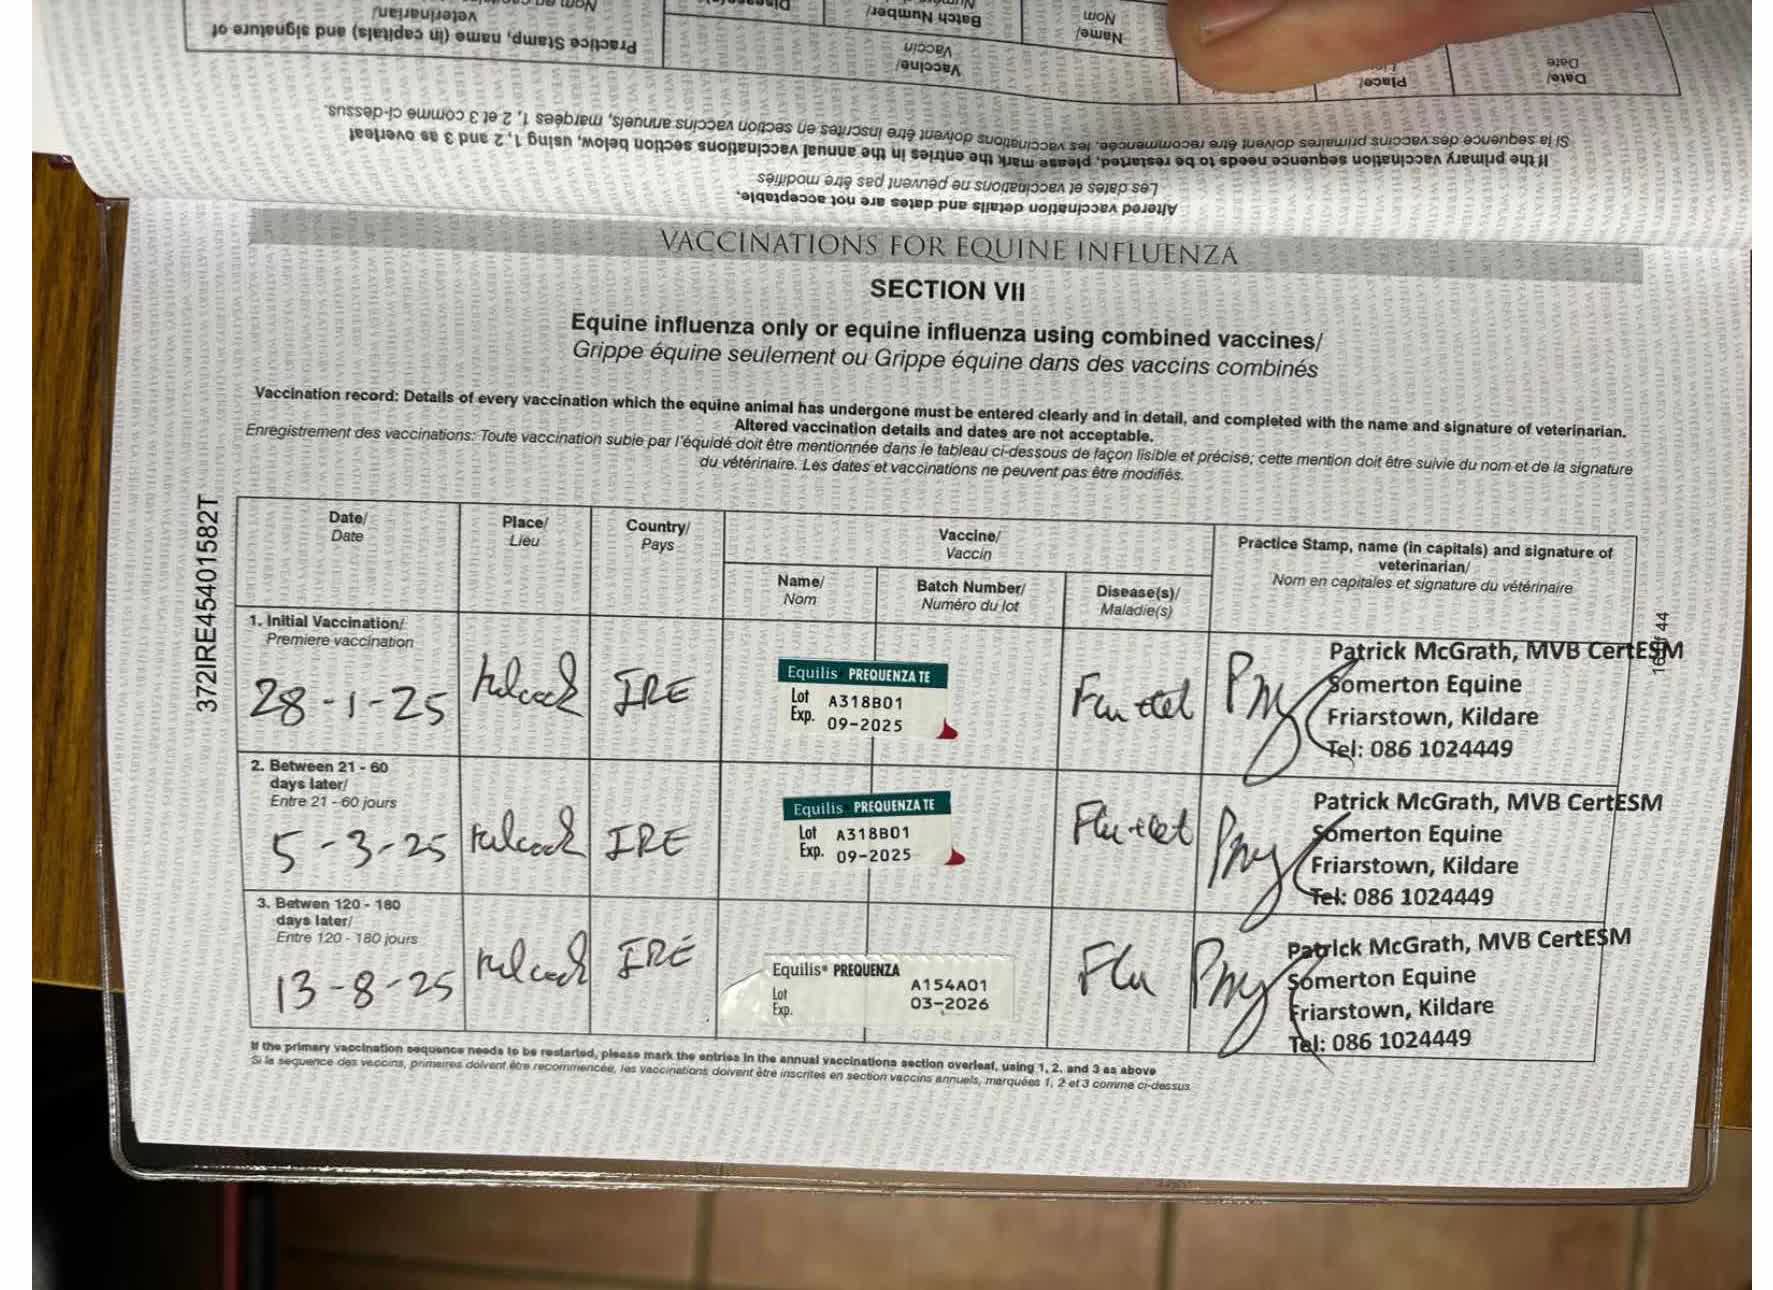 Practice Stamp, name (in capitals) and signature of
veterinarian/
Vaccine/
Vaccin
Batch Number/
Name/
Nom
Place/
Date/
Date
If the primary vaccination sequence needs to be restarted, please mark the entries in the annual vaccinations section below, using 1, 2 and 3 as overleaf
Si la sequence des vaccins primaires doivent être recommencée, les vaccinations doivent être inscrites en section vaccins annuels, marqées 1, 2 et 3 comme ci-dessus.
Altered vaccination details and dates are not acceptable.
Les dates et vaccinations ne peuvent pas être modifiés
VACCINATIONS FOR EQUINE INFLUENZA
SECTION VII
Equine influenza only or equine influenza using combined vaccines/
Grippe équine seulement ou Grippe équine dans des vaccins combinés
Vaccination record: Details of every vaccination which the equine animal has undergone must be entered clearly and in detail, and completed with the name and signature of veterinarian.
Altered vaccination details and dates are not acceptable.
Enregistrement des vaccinations: Toute vaccination subie par l'équidé doit être mentionnée dans le tableau ci-dessous de façon lisible et précise; cette mention doit être suivie du nom et de la signature
du vétérinaire. Les dates et vaccinations ne peuvent pas être modifiés.
372IRE45401582T
Date/
Date
Place/
Lieu
Country/
Pays
Vaccine/
Vaccin
Name/
Nom
Batch Number/
Numéro du lot
Disease(s)/
Maladie(s)
Practice Stamp, name (in capitals) and signature of
veterinarian/
Nom en capitales et signature du vétérinaire
1. Initial Vaccination/
Premiere vaccination
28-1-25
IRE
Equilis PREQUENZA TE
Lot A318B01
Exp. 09-2025
Flu + tet
Patrick McGrath, MVB CertESM
Somerton Equine
Friarstown, Kildare
Tel: 086 1024449
2. Between 21 - 60
days later/
Entre 21 - 60 jours
5-3-25
IRE
Equilis PREQUENZA TE
Lot A318B01
Exp. 09-2025
Flu + tet
Patrick McGrath, MVB CertESM
Somerton Equine
Friarstown, Kildare
Tel: 086 1024449
3. Betwen 120 - 180
days later/
Entre 120 - 180 jours
13-8-25
IRE
Equilis® PREQUENZA
Lot A154A01
Exp. 03-2026
Flu
Patrick McGrath, MVB CertESM
Somerton Equine
Friarstown, Kildare
Tel: 086 1024449
If the primary vaccination sequence needs to be restarted, please mark the entries in the annual vaccinations section overleaf, using 1, 2, and 3 as above
Si la sequence des vaccins, primaires doivent être recommencée, les vaccinations doivent être inscrites en section vaccins annuels, marquées 1, 2 et 3 comme ci-dessus